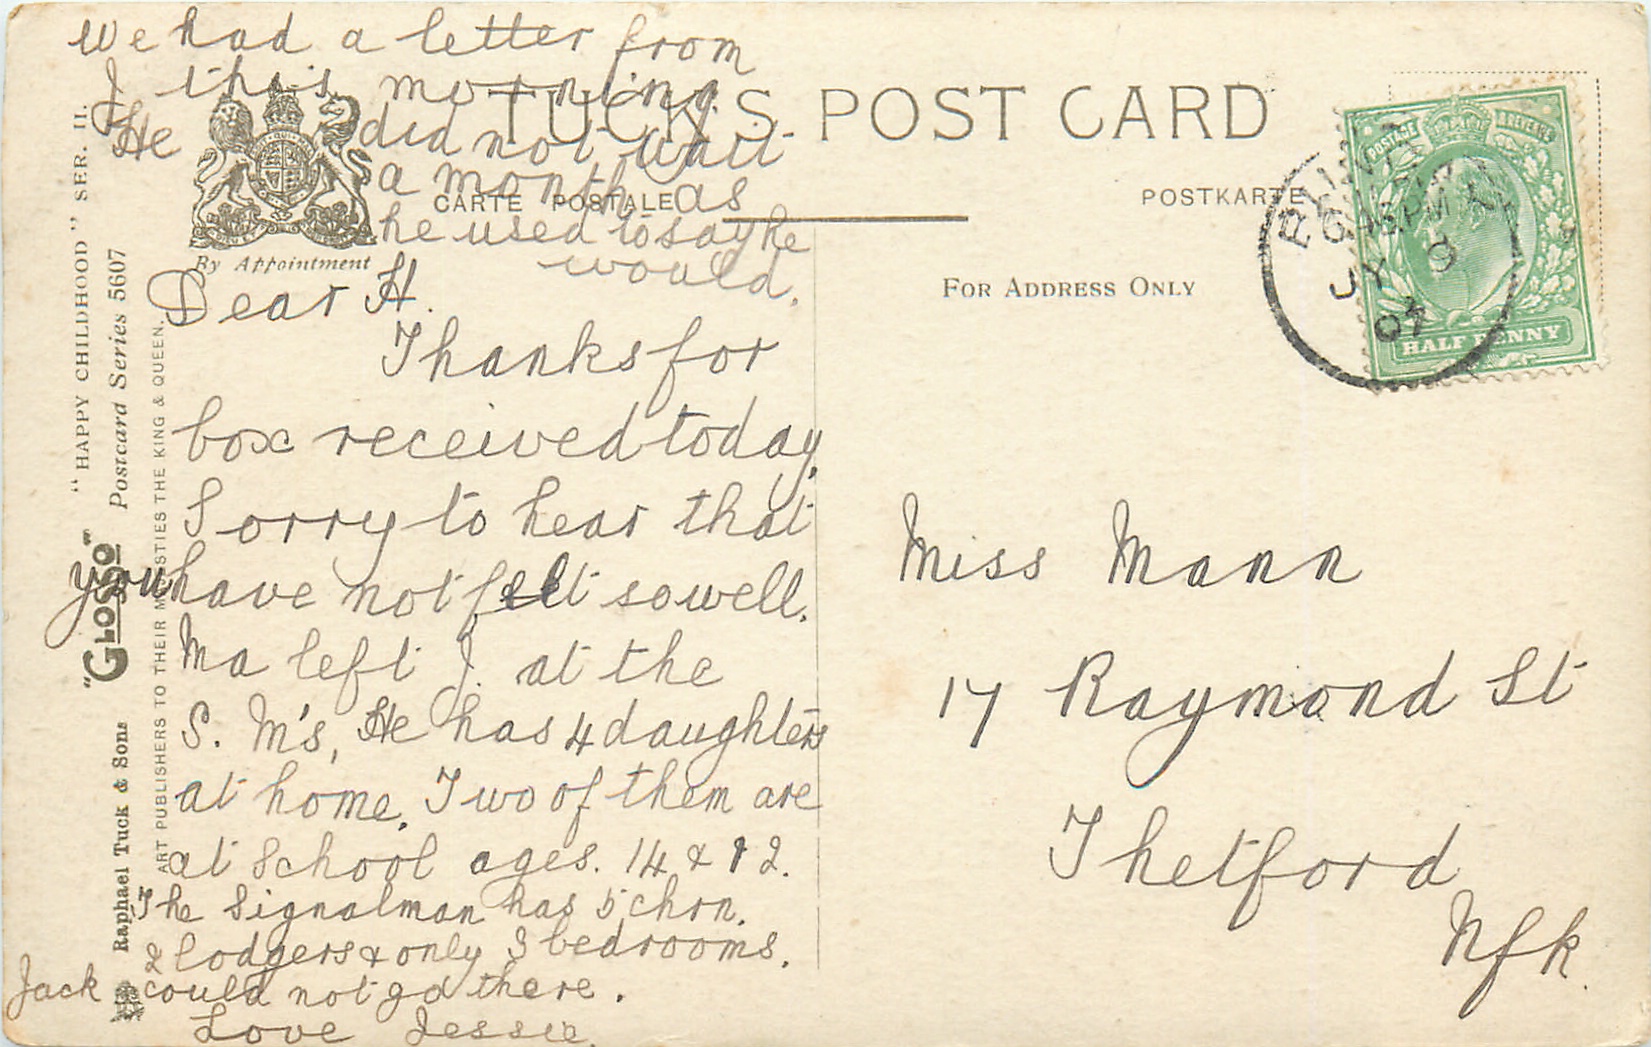 We had a letter from
J this morning.
He did not wait
a month as
he used to say he
would.
TUCK'S POST CARD
CARTE POSTALE
POSTKARTE
By Appointment
FOR ADDRESS ONLY
"HAPPY CHILDHOOD" SER. II.
"GLOSSO" Postcard Series 5607
Raphael Tuck & Sons
ART PUBLISHERS TO THEIR MAJESTIES THE KING & QUEEN.
Dear H.
Thanks for
box received today,
Sorry to hear that
you have not felt so well.
Ma left J. at the
S. M's, He has 4 daughters
at home. Two of them are
at School ages. 14 & 12.
The Signalman has 5 chrn.
& lodgers & only 3 bedrooms.
Jack could not go there.
Love Jessie.
POSTAGE & REVENUE
HALF PENNY
9 15 PM
JY 8
07
Miss Mann
17 Raymond St
Thetford
Nfk.